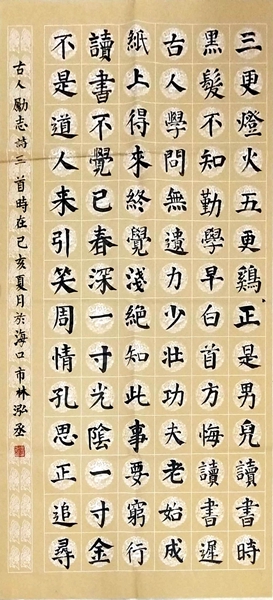 三更燈火五更鷄正是男兒讀書時
黑髮不知勤學早白首方悔讀書遲
古人學問無遺力少壯功夫老始成
紙上得來終覺淺絕知此事要窮行
讀書不覺已春深一寸光陰一寸金
不是道人来引笑周情孔思正追尋
古人勵志詩三首時在己亥夏月於海口市林泓丞